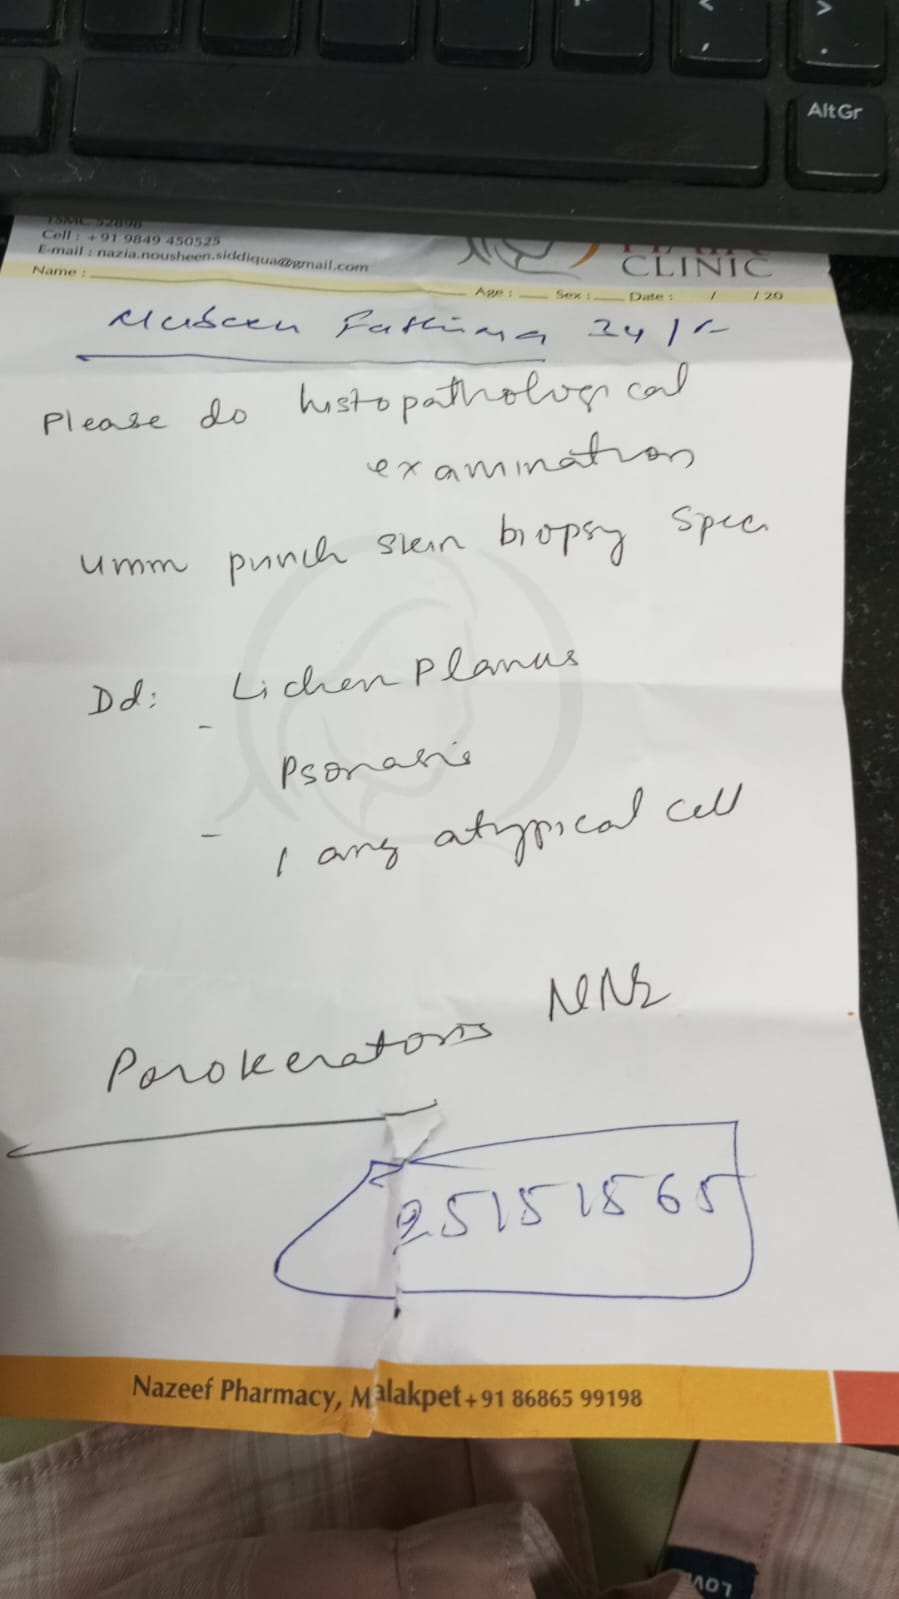 TSMC 52898
Cell : +91 9849 450525
E-mail : nazia.nousheen.siddiqua@gmail.com
CLINIC
Name :
Age : Sex : Date : / / 20
Mubeen Fathima 34/F
Please do histopathological
examination
4mm punch skin biopsy spec.
Dd: Lichen Planus
- Psoriasis
- / any atypical cell
Porokeratosis
25151565
Nazeef Pharmacy, Malakpet +91 86865 99198
AltGr
<
,
>
.
LOV